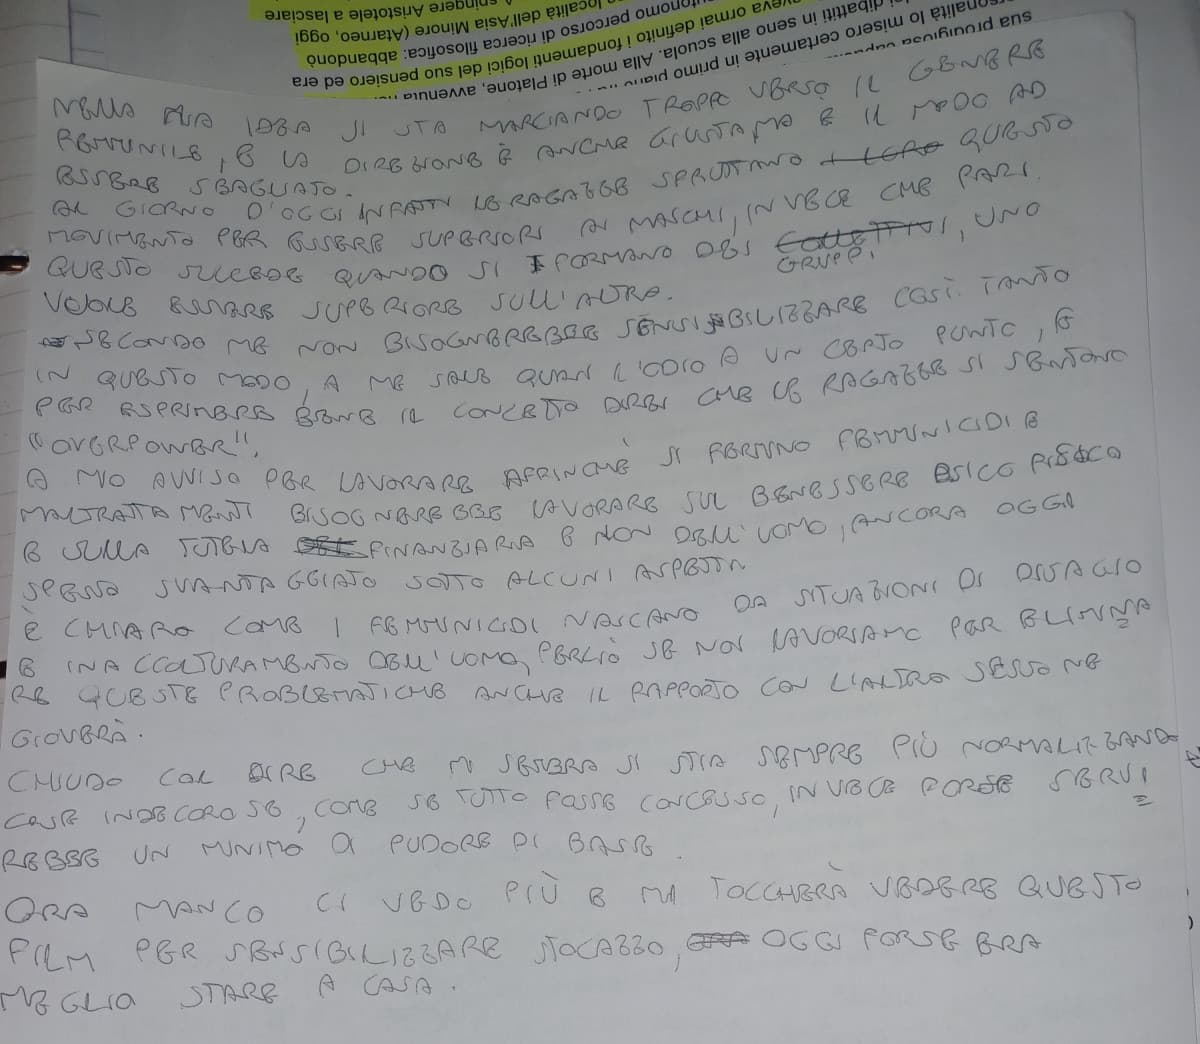 località dell'Asia Minore (Atarneo, oggi
autonomo percorso di ricerca filosofica: abbandonò
aveva ormai definito i fondamenti logici del suo pensiero ed era
dibattiti in seno alla scuola. Alla morte di Platone, avvenuta
lo misero certamente in primo piano
sua prodigiosa
NELLA MIA IDEA SI STA MARCIANDO TROPPO VERSO IL GENERE
FEMMINILE, E LA DIREZIONE È ANCHE GIUSTA MA È IL MODO AD
ESSERE SBAGLIATO.
AL GIORNO D'OGGI INFATTI LE RAGAZZE SFRUTTANO A LORO QUESTO
MOVIMENTO PER ESSERE SUPERIORI AI MASCHI, INVECE CHE PARI.
QUESTO SUCCEDE QUANDO SI FORMANO DEI COLLETTIVI, UNO
GRUPPI
VUOLE ESSERE SUPERIORE SULL'ALTRO.
SECONDO ME NON BISOGNEREBBE SENSIBILIZZARE COSÌ TANTO
IN QUESTO MODO, A ME SALE QUASI L'ODIO A UN CERTO PUNTO, E
PER ESPRIMERE BENE IL CONCETTO DIREI CHE LE RAGAZZE SI SENTONO
"OVERPOWER".
A MIO AVVISO PER LAVORARE AFFINCHÉ SI FERMINO FEMMINICIDI E
MALTRATTAMENTI BISOGNEREBBE LAVORARE SUL BENESSERE PSICO FISICO
E SULLA TUTELA FINANZIARIA E NON DELL'UOMO, ANCORA OGGI
SPESSO SVANTAGGIATO SOTTO ALCUNI ASPETTI.
È CHIARO COME I FEMMINICIDI NASCANO DA SITUAZIONI DI DISAGIO
E INACCULTURAMENTO DELL'UOMO, PERCIÒ SE NOI LAVORIAMO PER ELIMINA
RE QUESTE PROBLEMATICHE ANCHE IL RAPPORTO CON L'ALTRO SESSO NE
GIOVERÀ.
CHIUDO COL DIRE CHE MI SEMBRA SI STIA SEMPRE PIÙ NORMALIZZANDO
COSE INDECOROSE, COME SE TUTTO FOSSE CONCESSO, INVECE FORSE SERVI
REBBE UN MINIMO DI PUDORE DI BASE.
ORA MANCO CI VEDO PIÙ E MI TOCCHERÀ VEDERE QUESTO
FILM PER SENSIBILIZZARE STOCAZZO, OGGI FORSE ERA
MEGLIO STARE A CASA.